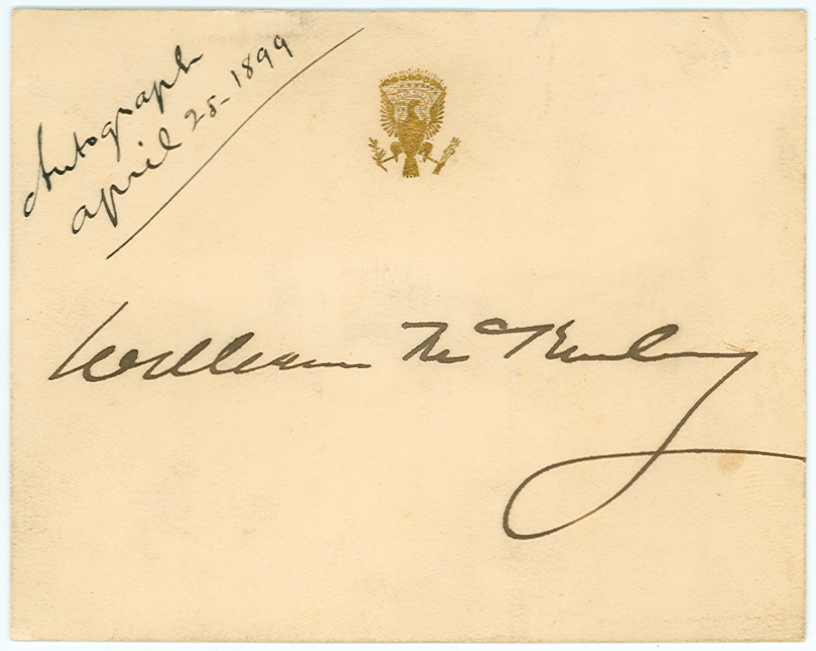 Autograph
april 25-1899
William McKinley